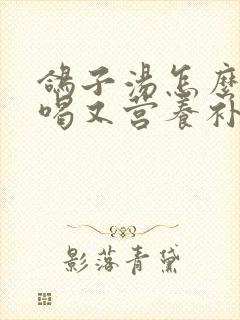 鸽子汤怎麽
喝又营养补
影落青黛